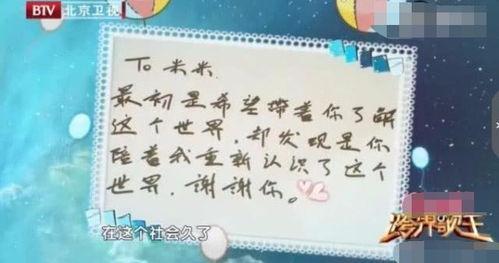 BTV 北京卫视
To 米米
最初是希望带着你了解
这个世界,却发现是你
陪着我重新认识了这个
世界,謝謝你。
在这个社会久了
跨界歌王